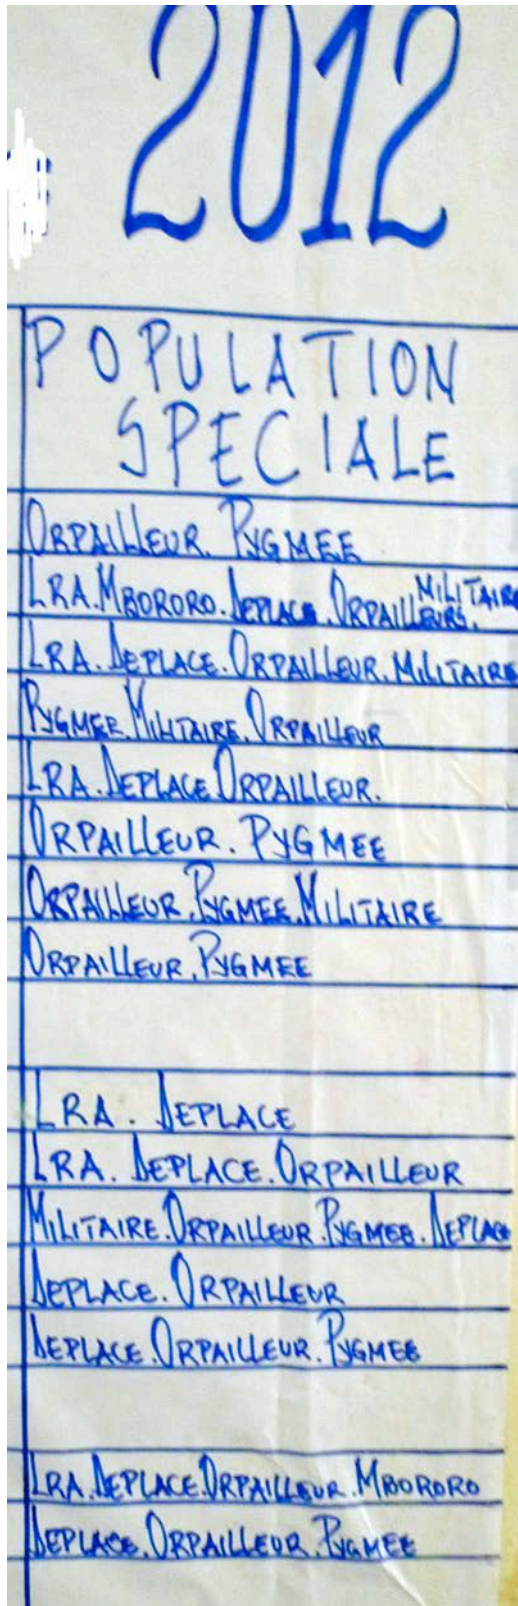 2012
POPULATION
SPECIALE
ORPAILLEUR. PYGMEE
LRA. MBORORO. DEPLACE. ORPAILLEURS. MILITAIRE
LRA. DEPLACE. ORPAILLEUR. MILITAIRE
PYGMEE. MILITAIRE. ORPAILLEUR
LRA. DEPLACE. ORPAILLEUR.
ORPAILLEUR. PYGMEE
ORPAILLEUR. PYGMEE. MILITAIRE
ORPAILLEUR. PYGMEE
LRA. DEPLACE
LRA. DEPLACE. ORPAILLEUR
MILITAIRE. ORPAILLEUR. PYGMEE. DEPLACE
DEPLACE. ORPAILLEUR
DEPLACE. ORPAILLEUR. PYGMEE
LRA. DEPLACE. ORPAILLEUR. MBORORO
DEPLACE. ORPAILLEUR. PYGMEE